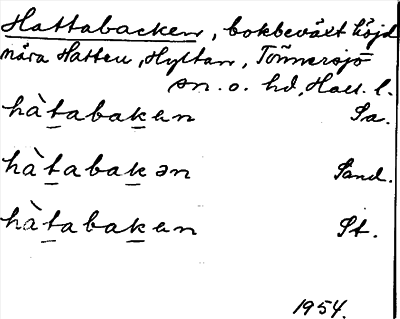 Hattabacken, bokbeväxt höjd
nära Hatten, Hyltan, Tönnersjö
sn. o. hd, Hall. l.
hàtabakan Sa.
hàtabakən Sand.
hàtabakan St.
1954.